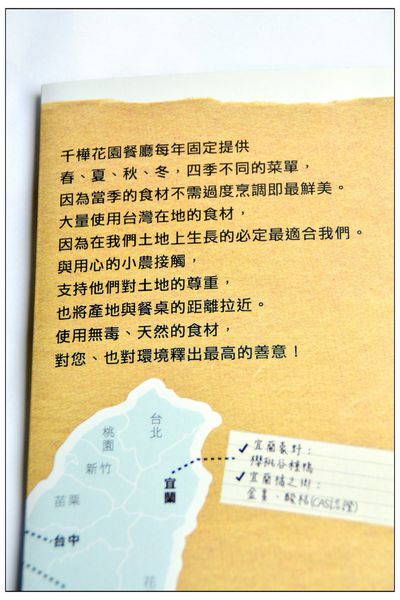 千樺花園餐廳每年固定提供
春、夏、秋、冬，四季不同的菜單，
因為當季的食材不需過度烹調即最鮮美。
大量使用台灣在地的食材，
因為在我們土地上生長的必定最適合我們。
與用心的小農接觸，
支持他們對土地的尊重，
也將產地與餐桌的距離拉近。
使用無毒、天然的食材，
對您、也對環境釋出最高的善意！
台北
桃園
新竹
宜蘭
苗栗
台中
花
✓宜蘭豪野：
櫻桃谷種鴨
✓宜蘭橘之鄉：
金棗、酸桔(CAS認證)